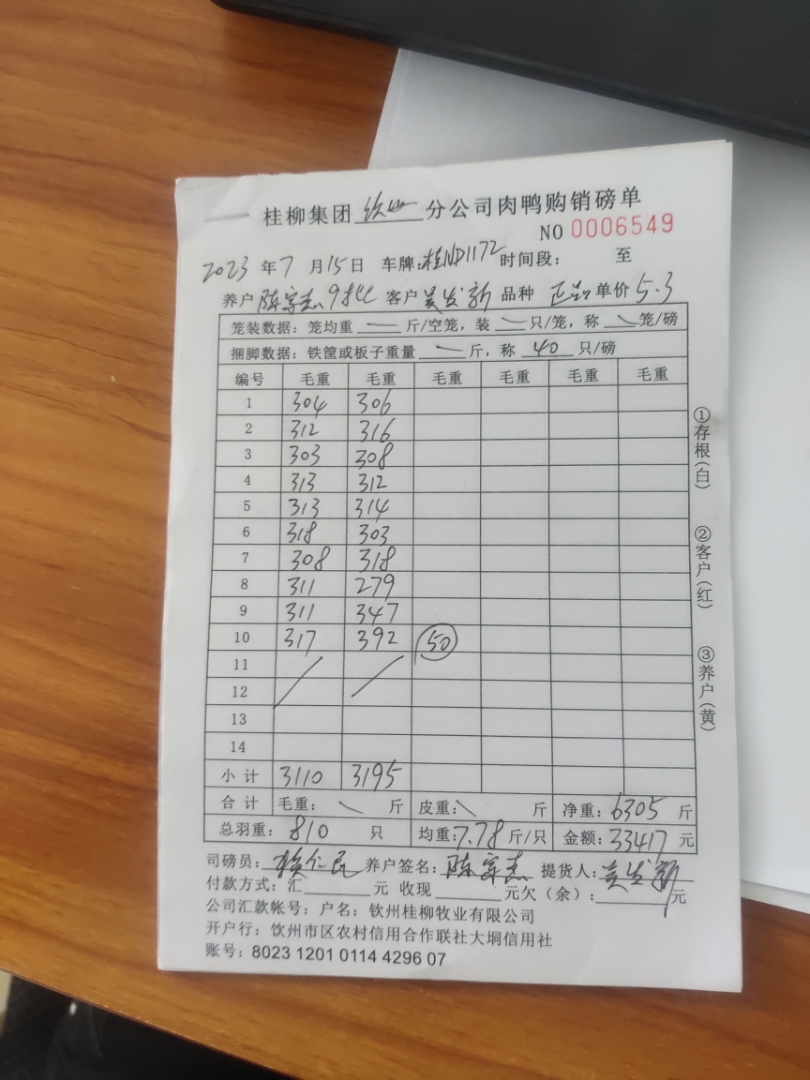 桂柳集团 钦州 分公司肉鸭购销磅单
NO 0006549
2023 年 7 月 15 日 车牌:桂ND1172 时间段: 至
养户 陈家杰9批 客户 吴发新 品种 正品 单价 5.3
笼装数据: 笼均重 — 斤/空笼, 装 — 只/笼, 称 — 笼/磅
捆脚数据: 铁筐或板子重量 — 斤, 称 40 只/磅
编号 毛重 毛重 毛重 毛重 毛重 毛重
1 304 306
2 312 316
3 303 308
4 313 312
5 313 314
6 318 303
7 308 318
8 311 279
9 311 347
10 317 392 50
11
12
13
14
小计 3110 3195
合计 毛重: \ 斤 皮重: \ 斤 净重: 6305 斤
总羽重: 810 只 均重: 7.78 斤/只 金额: 33417 元
司磅员: 养户签名: 陈家杰 提货人: 吴发新
付款方式: 汇 元 收现 元欠(余): 元
公司汇款帐号: 户名: 钦州桂柳牧业有限公司
开户行: 钦州市区农村信用合作联社大垌信用社
账号: 8023 1201 0114 4296 07
①存根(白) ②客户(红) ③养户(黄)